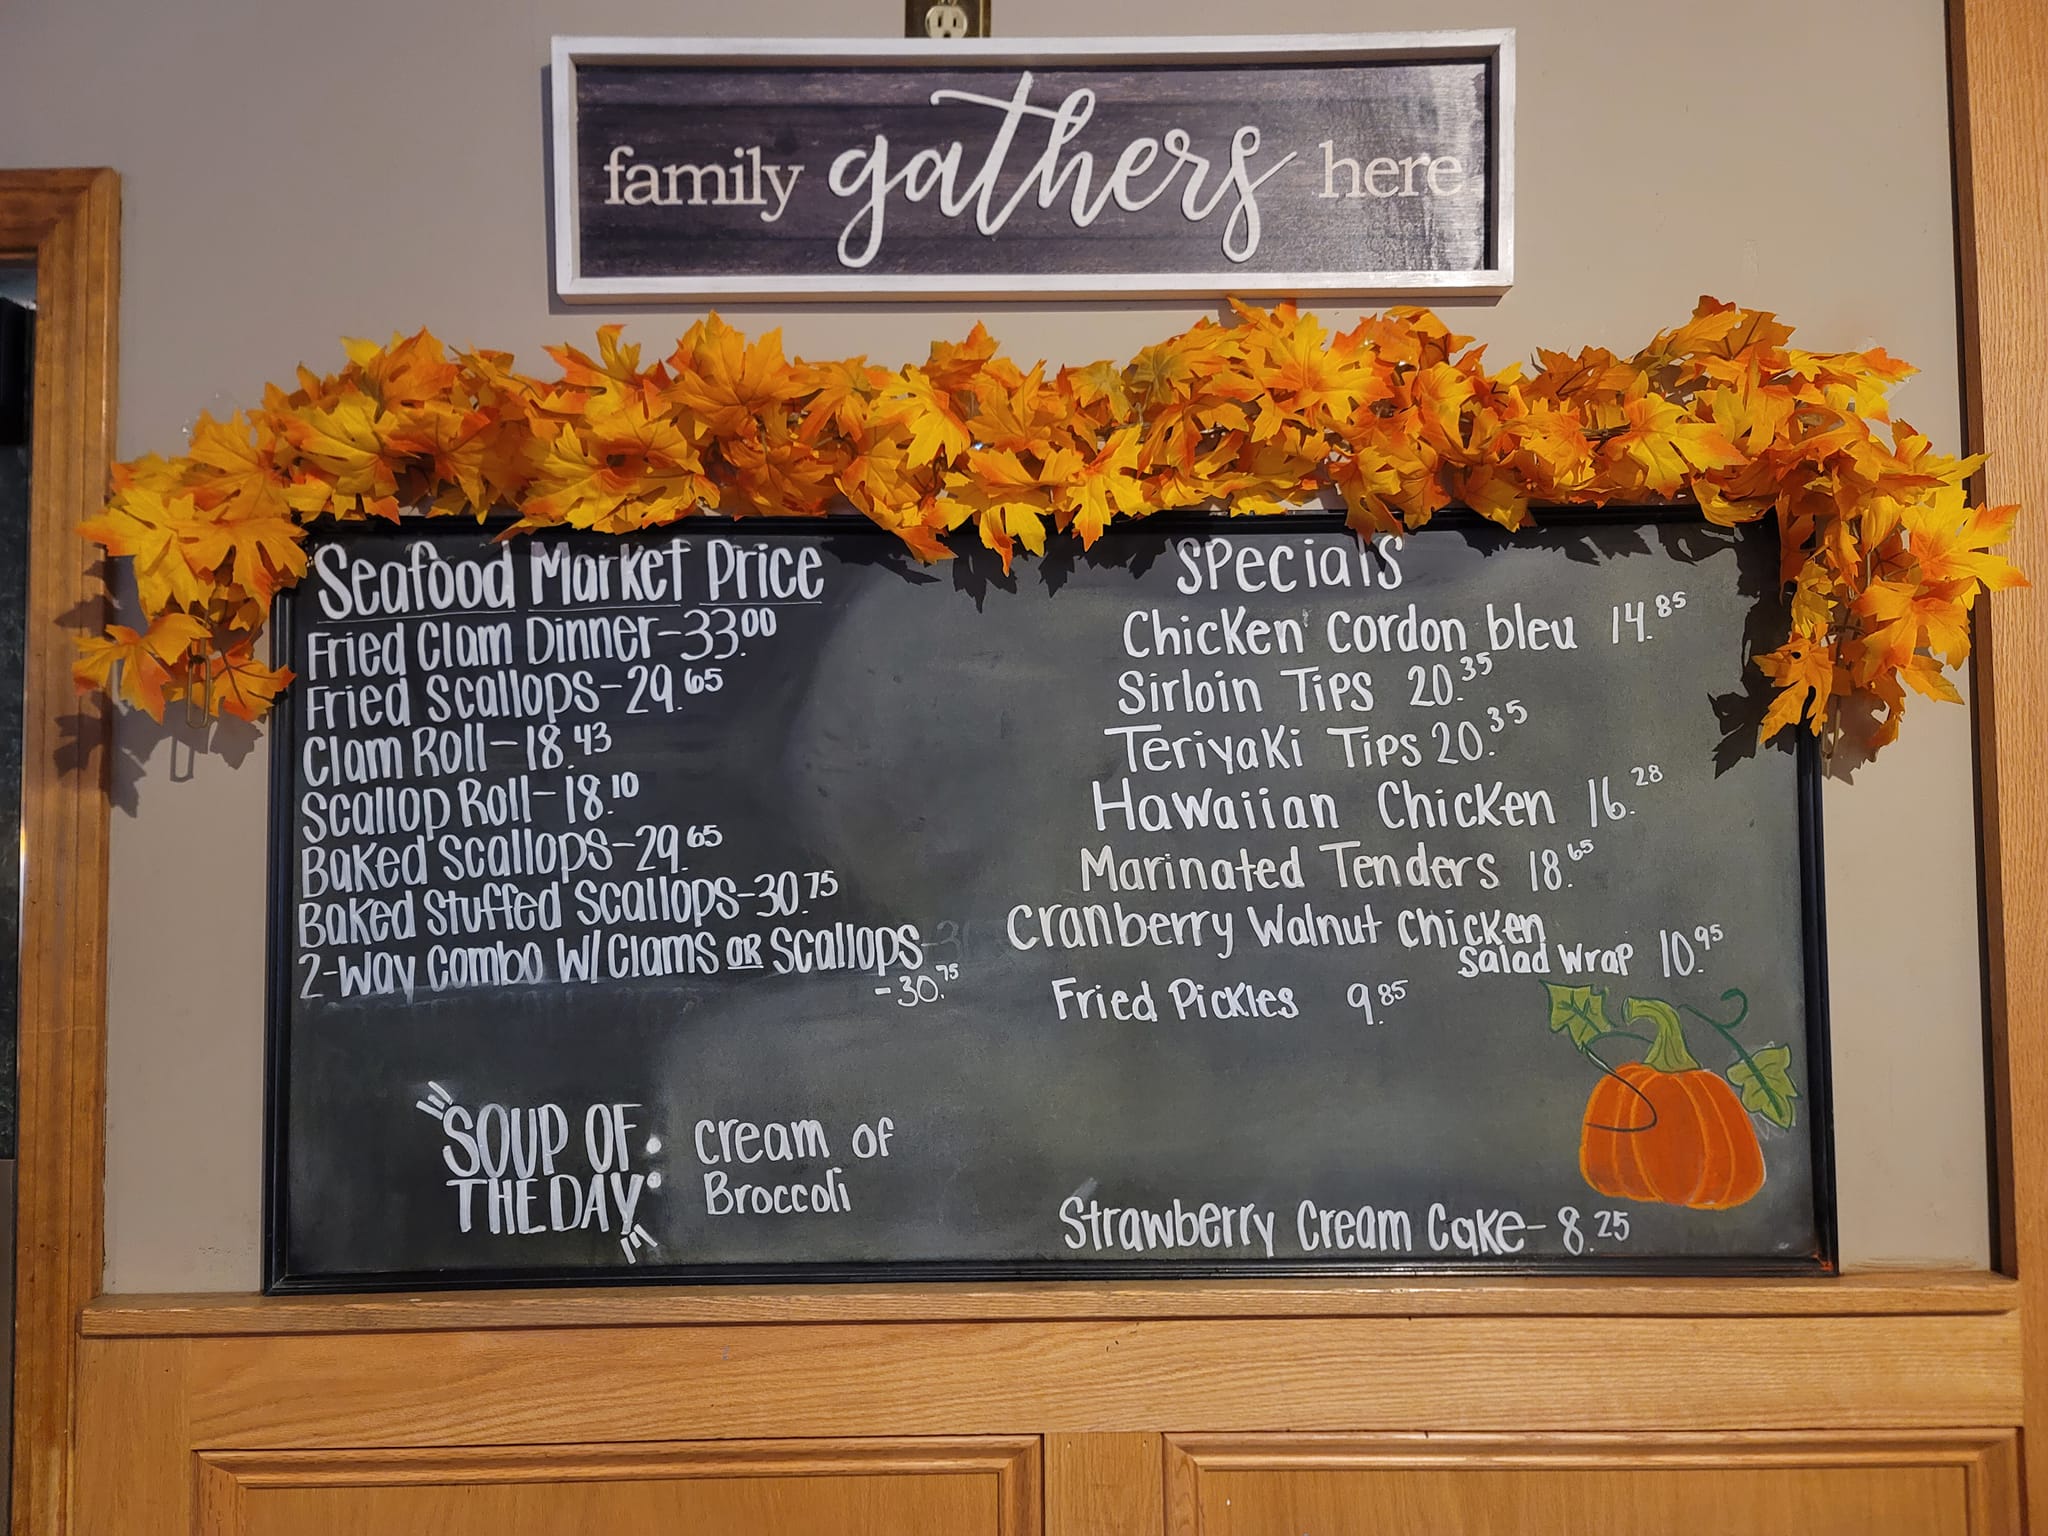 family gathers here
Seafood Market Price
Fried Clam Dinner-33.00
Fried Scallops-29.65
Clam Roll-18.43
Scallop Roll-18.10
Baked Scallops-29.65
Baked Stuffed Scallops-30.75
2-Way Combo W/ Clams OR Scallops
-30.75
"SOUP OF THE DAY": Cream of
Broccoli
Specials
Chicken Cordon bleu 14.85
Sirloin Tips 20.35
Teriyaki Tips 20.35
Hawaiian Chicken 16.28
Marinated Tenders 18.65
Cranberry Walnut Chicken
Salad Wrap 10.95
Fried Pickles 9.85
Strawberry Cream Cake-8.25